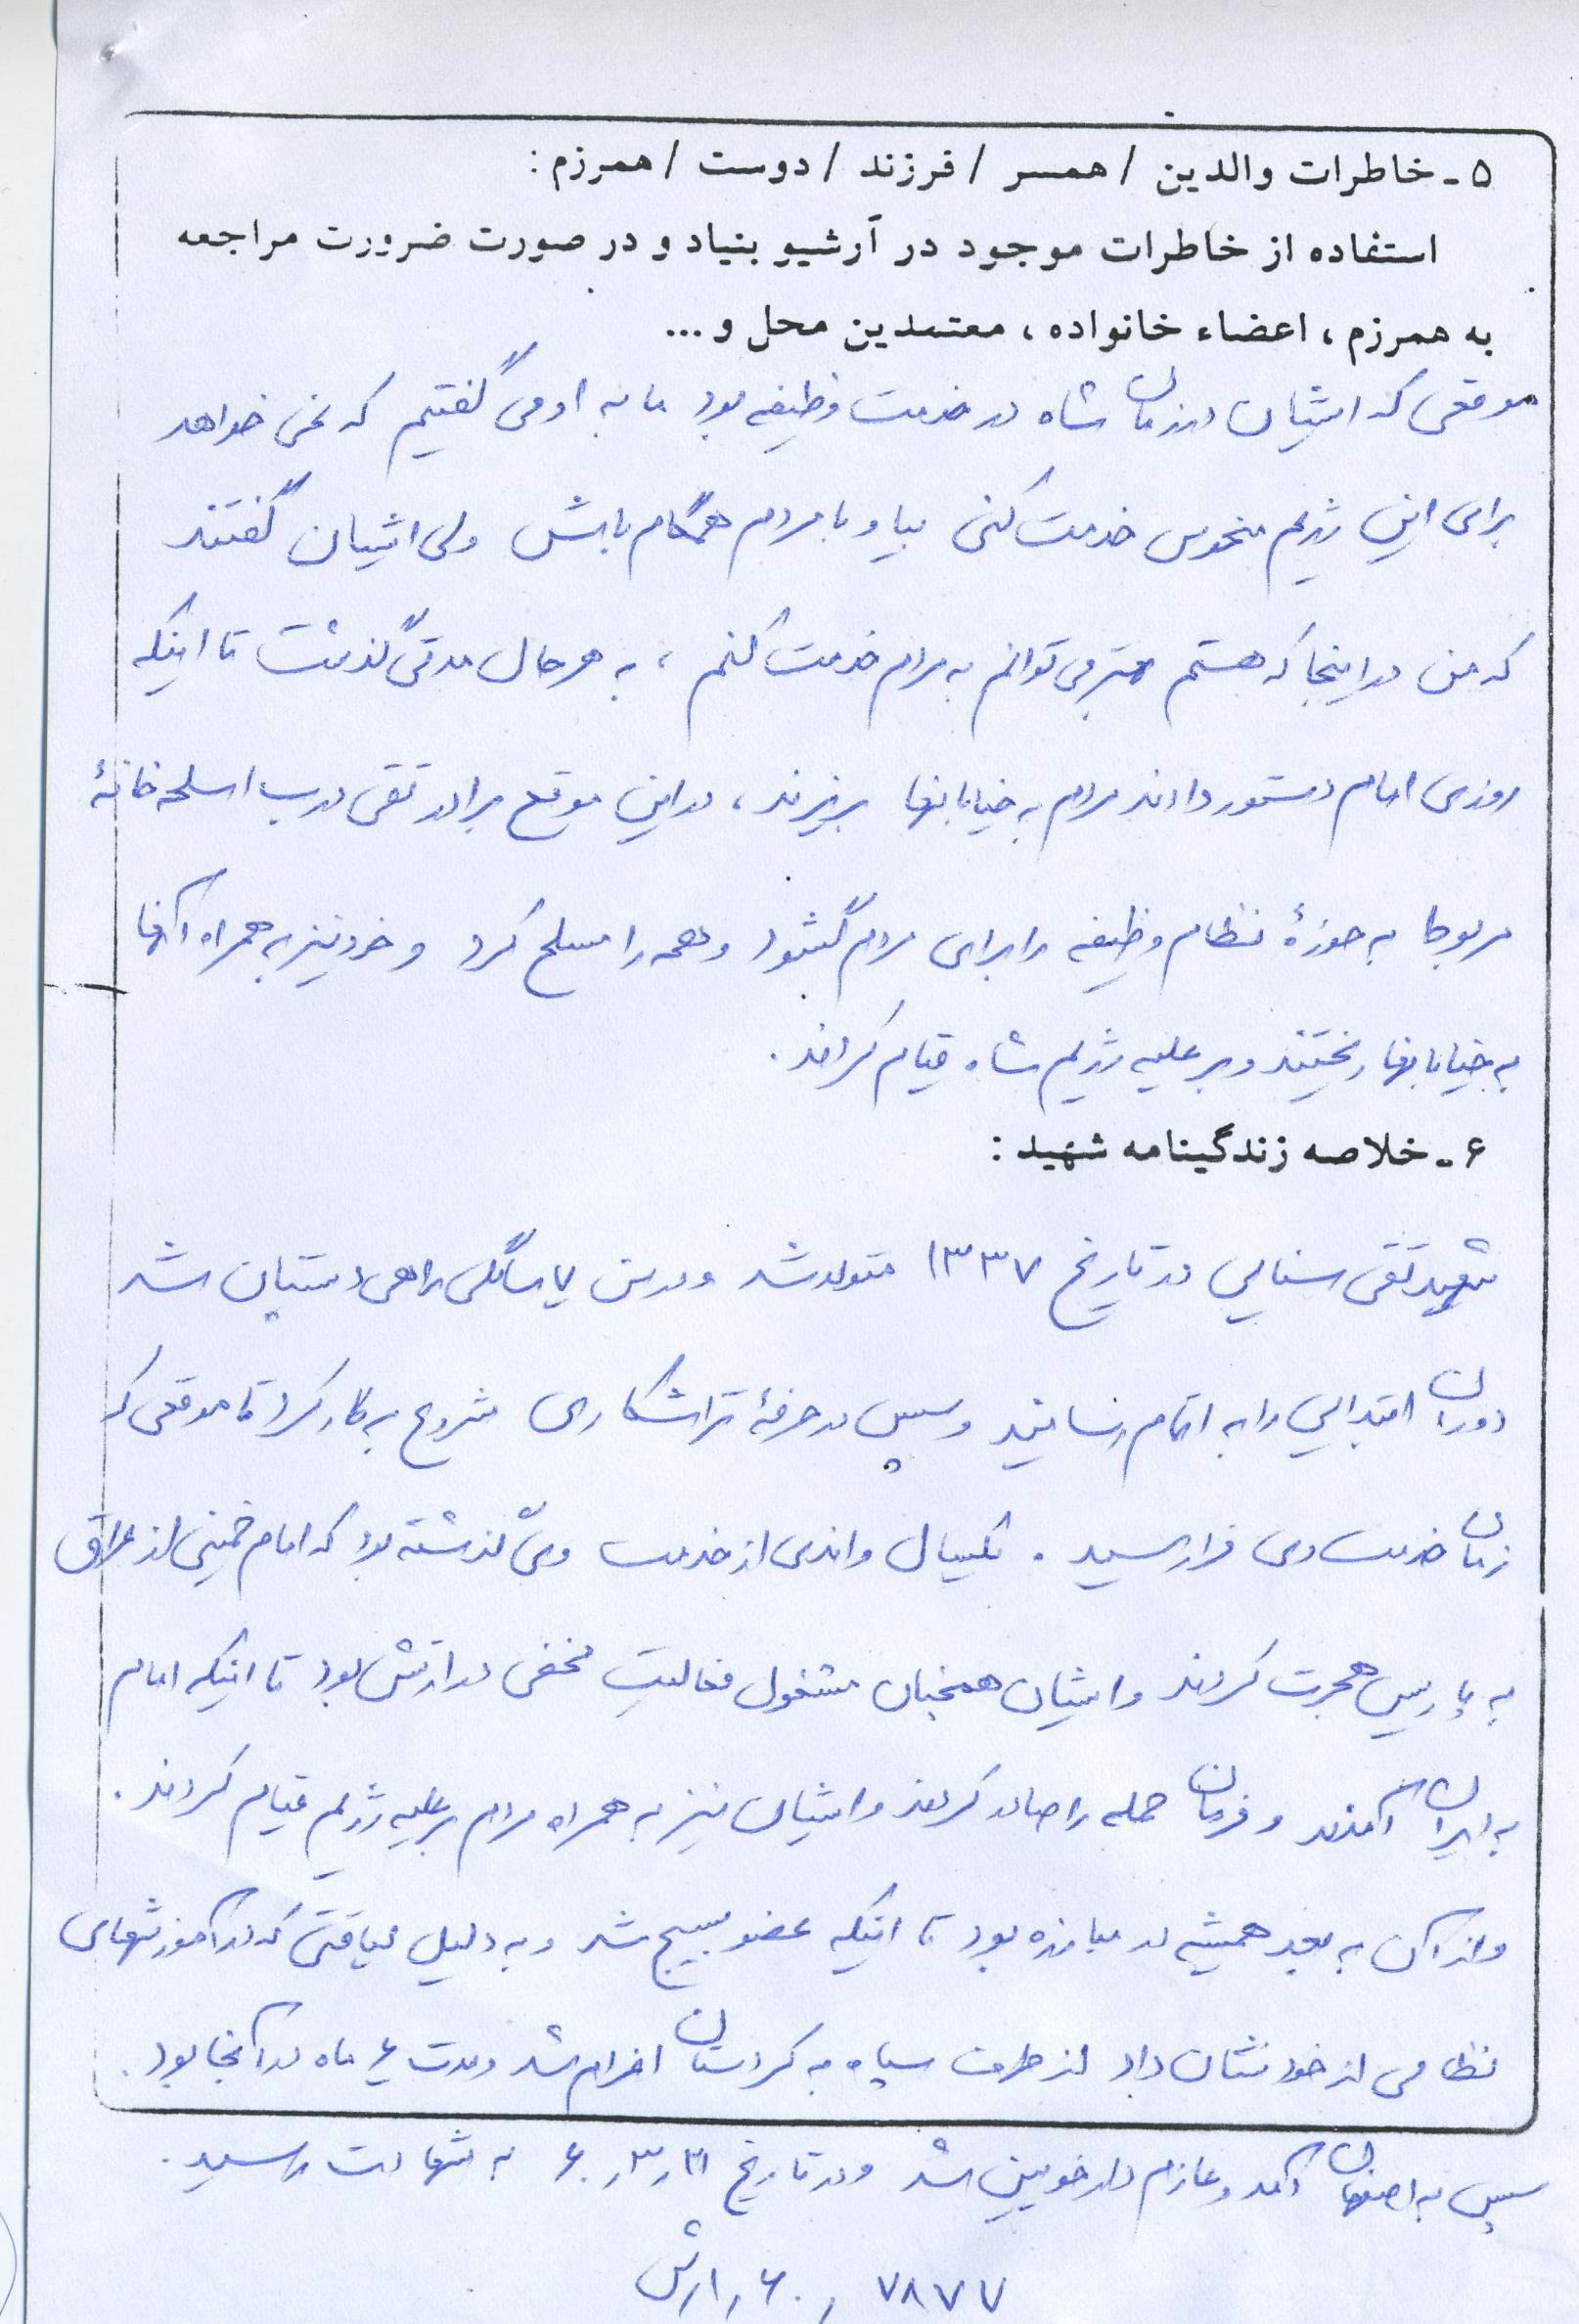 ۵ - خاطرات والدین / همسر / فرزند / دوست / همرزم :
استفاده از خاطرات موجود در آرشیو بنیاد و در صورت ضرورت مراجعه
به همرزم ، اعضاء خانواده ، معتمدین محل و ...
موقعی که ایشان در زمان شاه در خدمت وظیفه بود ما به او می گفتیم که نمی خواهد
برای این رژیم منحوس خدمت کنی بیا و با مردم همگام باش ولی ایشان گفتند
که من در اینجا که هستم بهتر می توانم به مردم خدمت کنم ، به هر حال مدتی گذشت تا اینکه
روزی امام دستور دادند مردم به خیابانها بریزند ، در این موقع برادر تقی درب اسلحه خانهٔ
مربوط به حوزهٔ نظام وظیفه را برای مردم گشود و همه را مسلح کرد و خود نیز به همراه آنها
به خیابانها ریختند و بر علیه رژیم شاه قیام کردند .
۶ - خلاصه زندگینامه شهید :
شهید تقی سنایی در تاریخ ۱۳۳۷ متولد شد و در سن ۷ سالگی راهی دبستان شد
دوران ابتدایی را به اتمام رسانید و سپس در حرفهٔ تراشکاری شروع به کار کرد تا موقعی که
زمان خدمت وی فرا رسید . یکسال و اندی از خدمت وی گذشته بود که امام خمینی از عراق
به پاریس هجرت کردند و ایشان همچنان مشغول فعالیت مخفی در ارتش بود تا اینکه امام
به ایران آمدند و فرمان حمله را صادر کردند و ایشان نیز به همراه مردم بر علیه رژیم قیام کردند .
و از آن به بعد همیشه در مبارزه بود تا اینکه عضو بسیج شد و به دلیل لیاقتی که در آموزشهای
نظامی از خود نشان داد از طرف سپاه به کردستان اعزام شد و مدت ۶ ماه در آنجا بود .
سپس به اصفهان آمد و عازم دارخوین شد و در تاریخ ۶۰٫۳٫۲۱ به شهادت رسید .
۷۸۷۷ ر ۶۰ ر ارتش